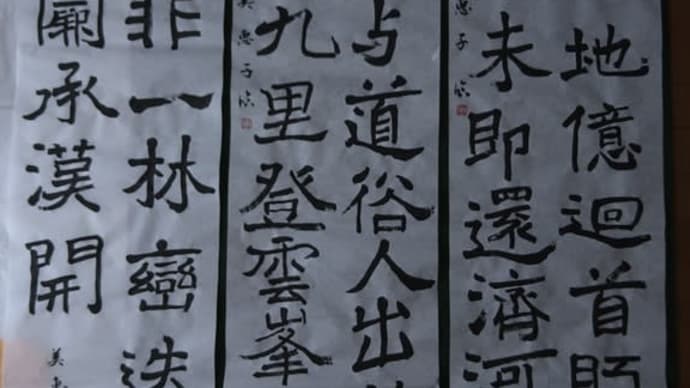 地億迴首眄
未即還濟河
惠子臨
与道俗人出
九里登雲峯
美惠子臨
非一林巒迭
承漢開
美惠